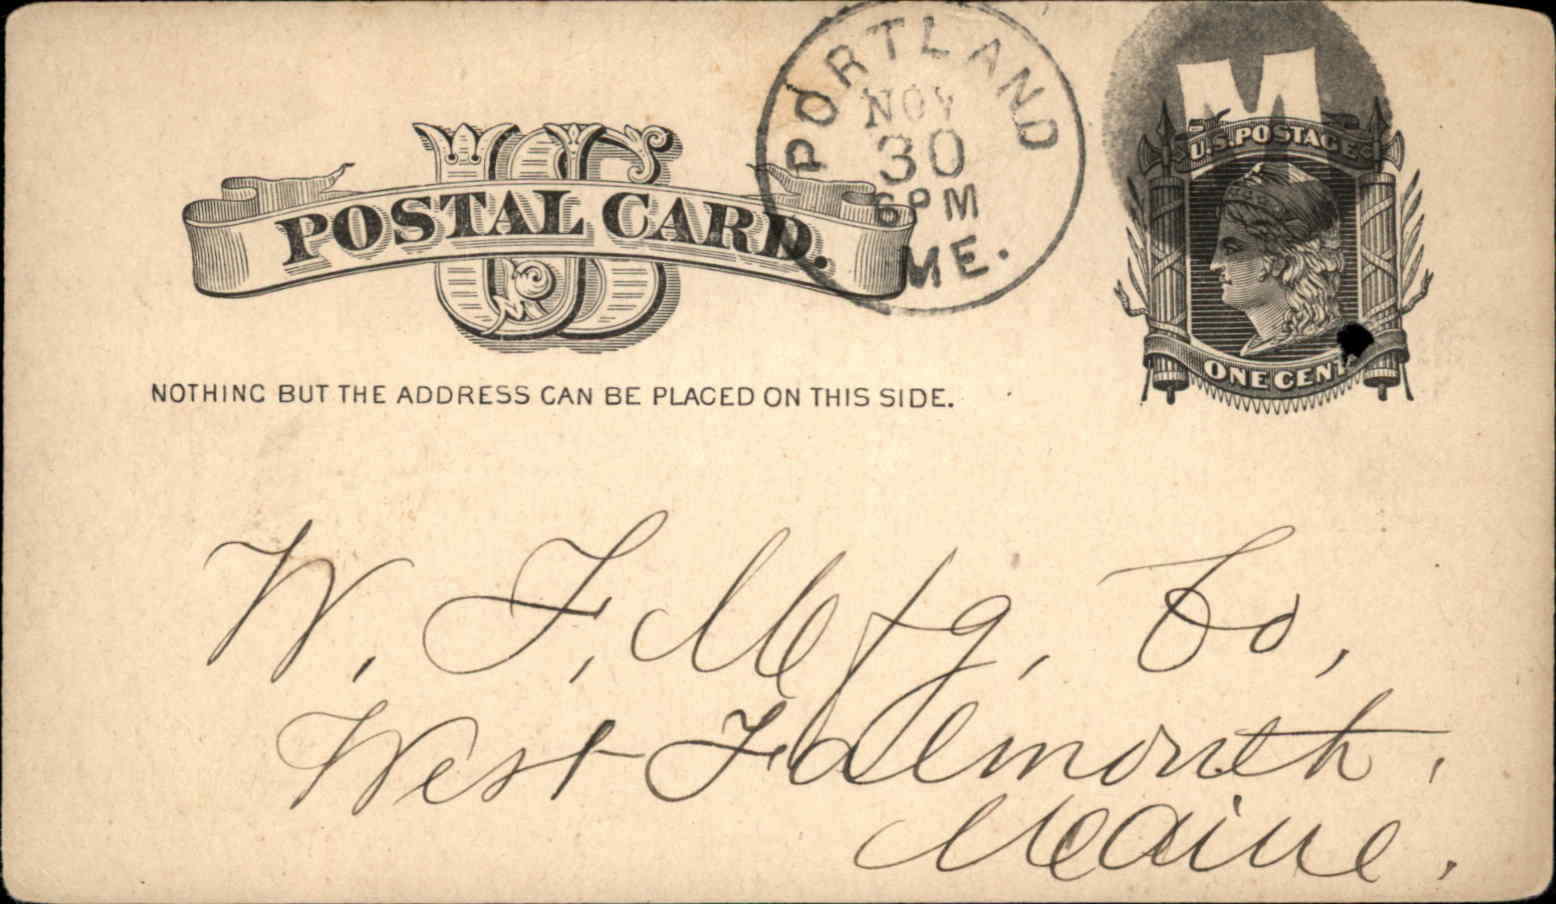 US
POSTAL CARD.
PORTLAND
NOV
30
6 PM
ME.
M
U.S. POSTAGE
ONE CENT
NOTHING BUT THE ADDRESS CAN BE PLACED ON THIS SIDE.
W. F. Mfg. Co,
West Falmouth,
Maine.